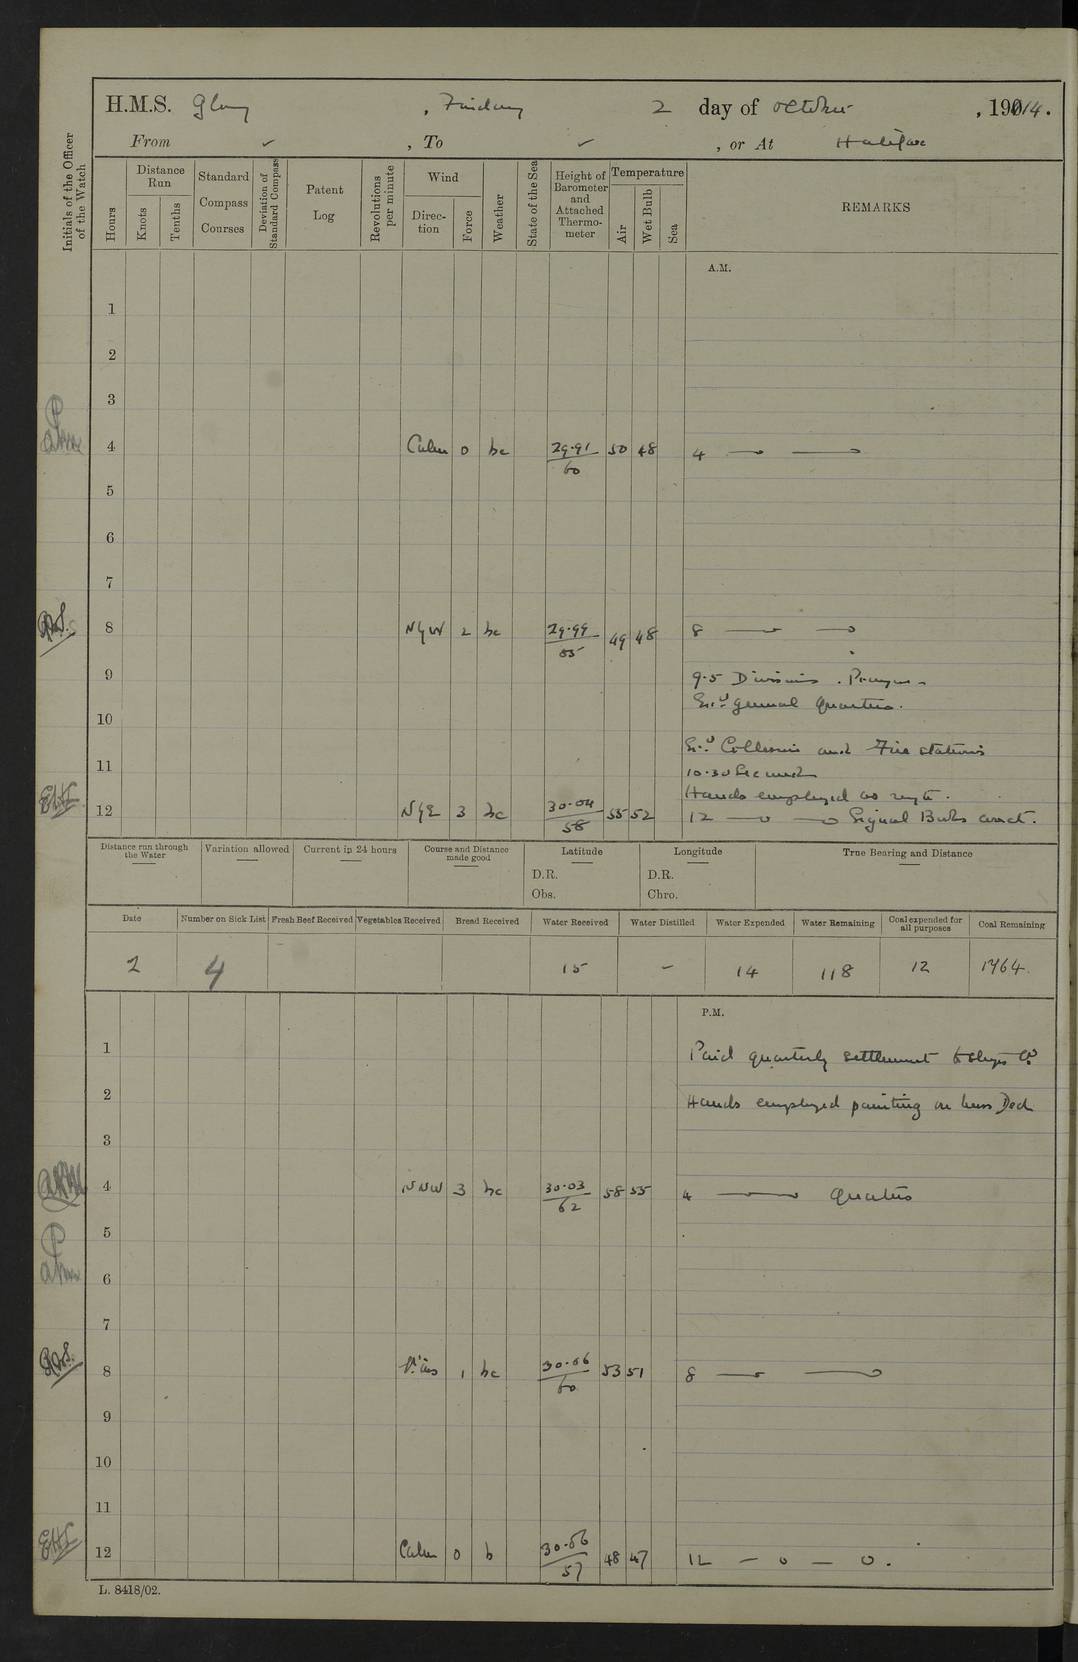 H.M.S. Glory, Friday 2 day of October, 1914.
From ✓, To ✓, or At Halifax
Initials of the Officer of the Watch
Hours
Distance Run
Knots
Tenths
Standard Compass Courses
Deviation of Standard Compass
Patent Log
Revolutions per minute
Wind
Direction
Force
Weather
State of the Sea
Height of Barometer and Attached Thermometer
Temperature
Air
Wet Bulb
Sea
REMARKS
A.M.
1
2
3
4 Calm 0 bc 29.91 / 60 50 48 4
5
6
7
8 N by W 2 bc 29.99 / 55 49 48 8
9 9.5 Divisions. Prayers.
Ex.d general Quarters.
10
Ex.d Collision and Fire stations
11 10.30 Secured
EHL Hands employed as reqte.
12 N by E 3 bc 30.04 / 58 55 52 12 — o — o Signal Books correct.
Distance run through the Water
Variation allowed
Current in 24 hours
Course and Distance made good
Latitude
D.R.
Obs.
Longitude
D.R.
Chro.
True Bearing and Distance
Date Number on Sick List Fresh Beef Received Vegetables Received Bread Received Water Received Water Distilled Water Expended Water Remaining Coal expended for all purposes Coal Remaining
2 4 15 - 14 118 12 1764.
P.M.
1 Paid quarterly settlement to Ships Co.
2 Hands employed painting on Mess Deck
3
4 NNW 3 bc 30.03 / 62 58 55 4 Quarters
5
6
7
8 V'ius 1 bc 30.06 / 60 53 51 8
9
10
11
EHL
12 Calm 0 b 30.06 / 57 48 47 12 — o — o.
L. 8418/02.